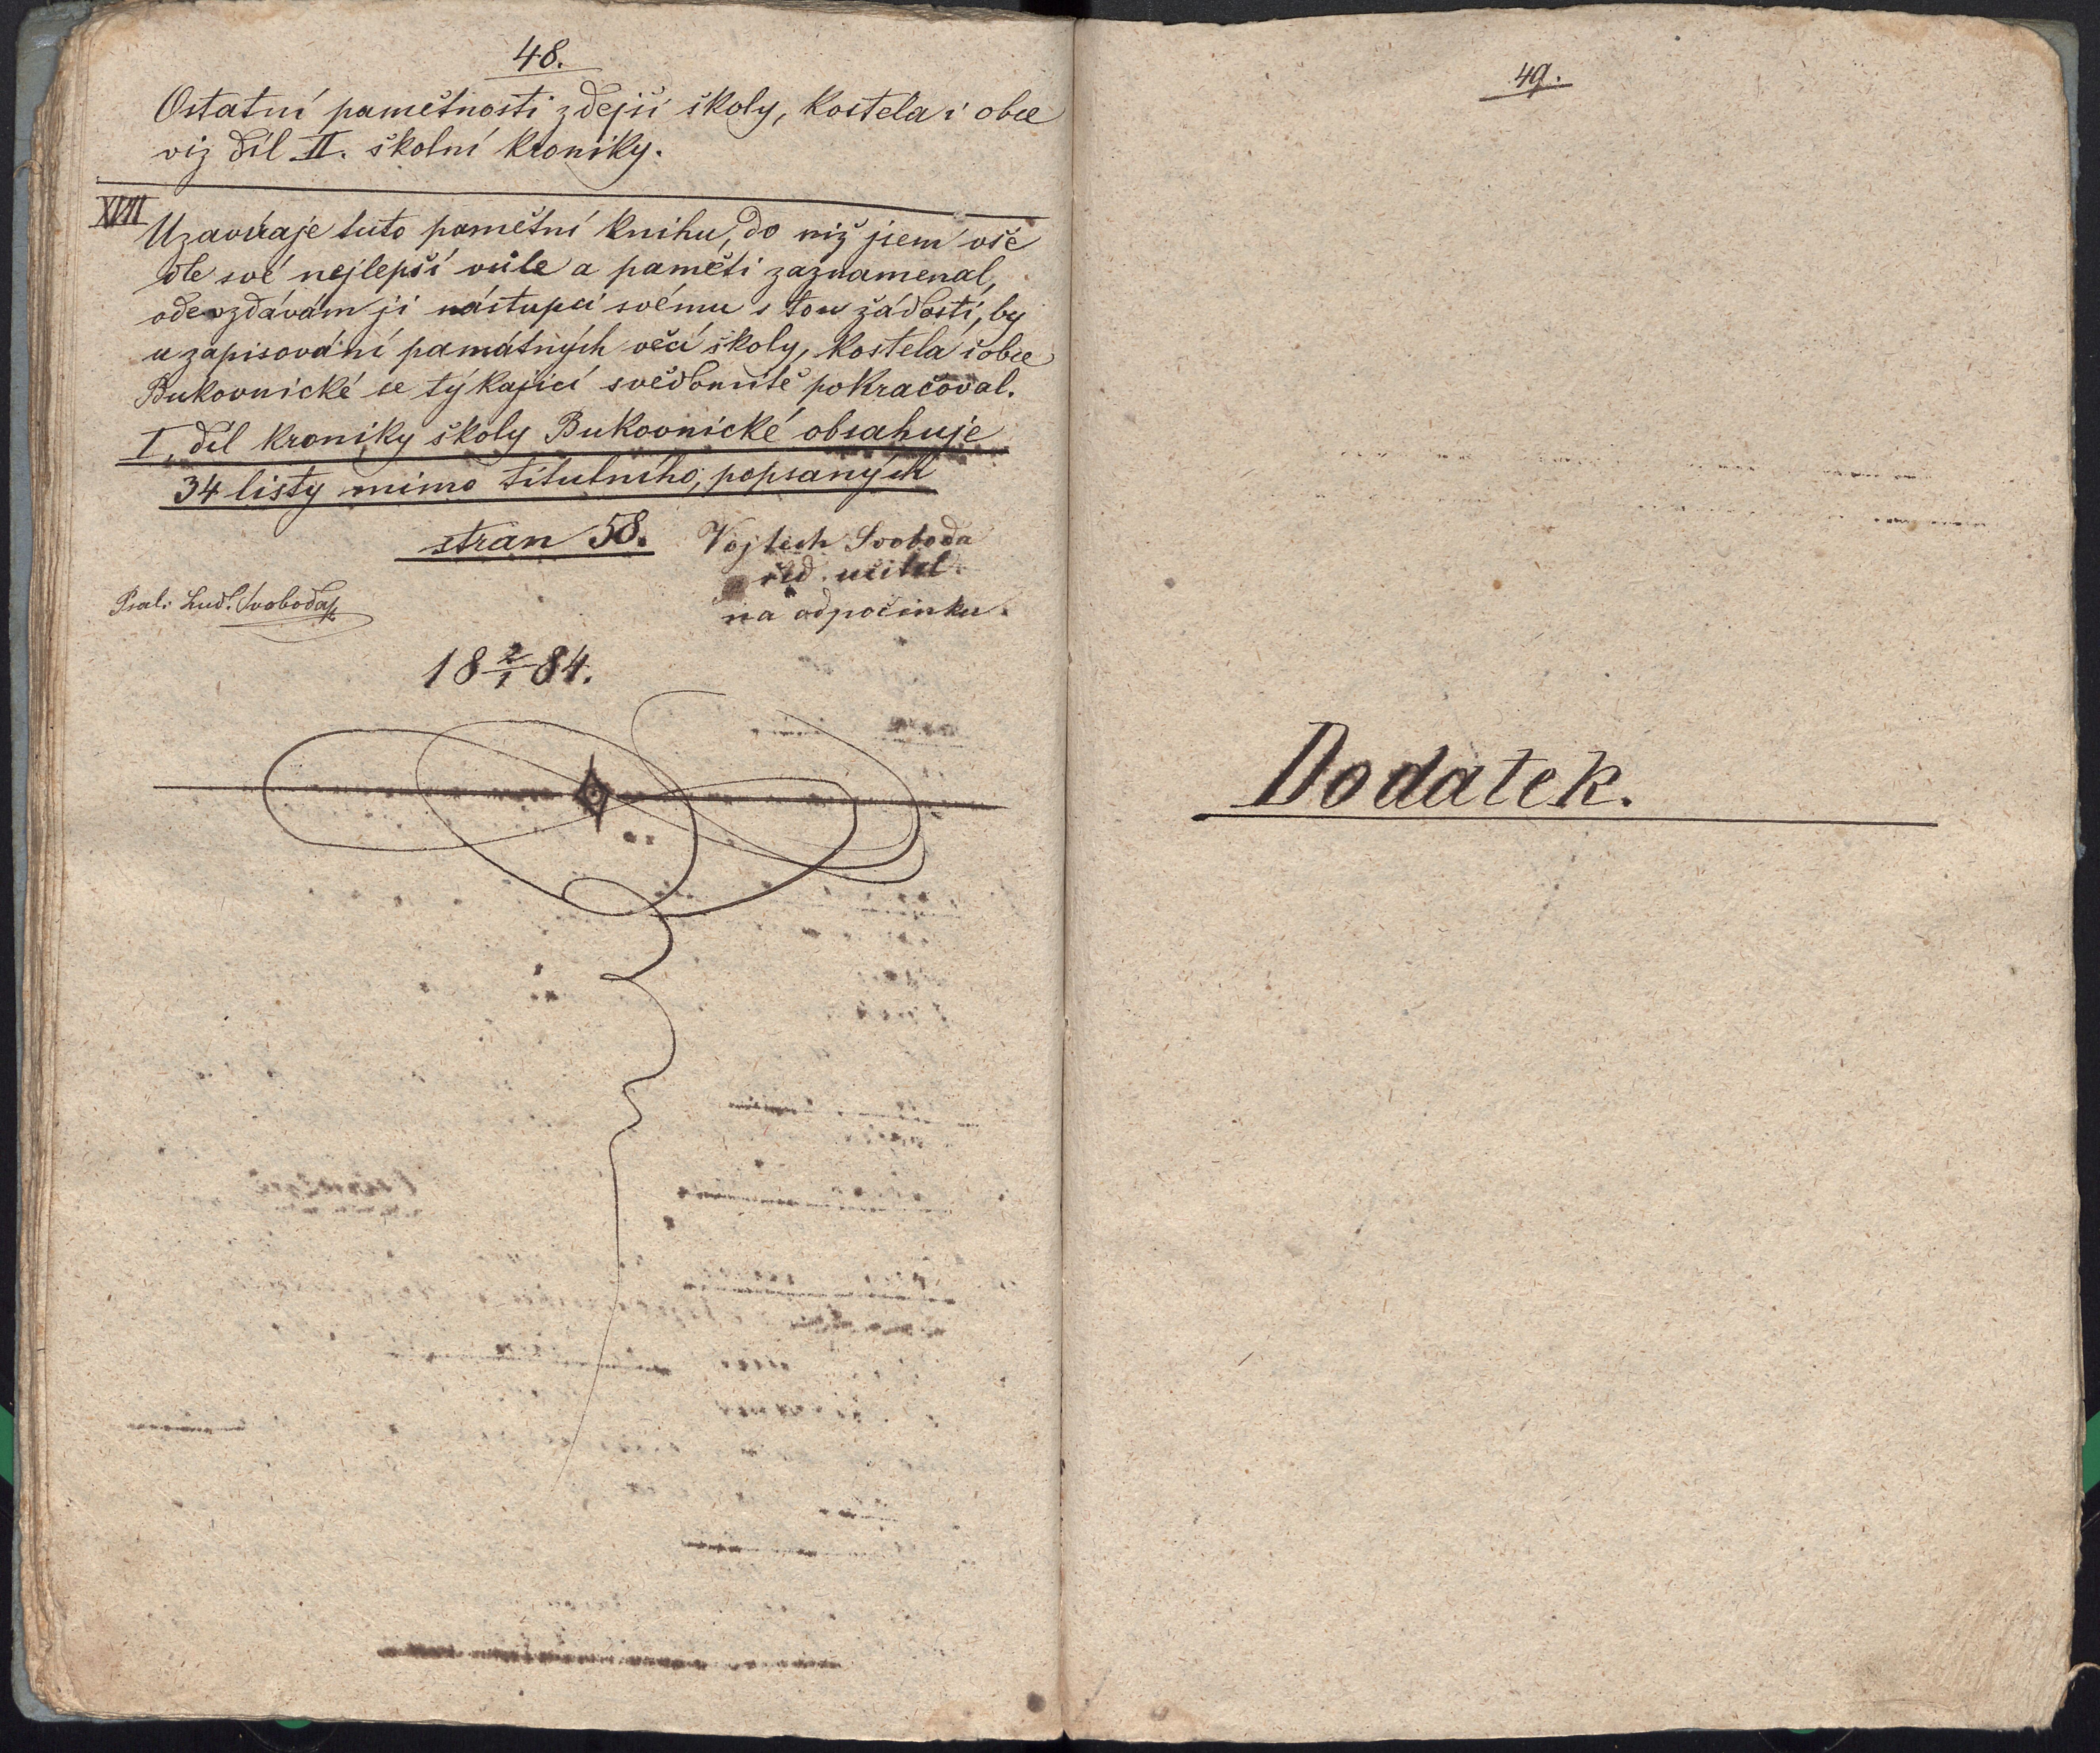 48.
Ostatní pamětnosti zdejší školy, kostela i obce
viz díl II. školní kroniky.
XVII
Uzavíraje tuto pamětní knihu, do niž jsem vše
dle své nejlepší vůle a paměti zaznamenal,
odevzdávám ji nástupci svému s tou žádostí, by
u zapisování památných věcí školy, kostela i obce
Bukovnické se týkající svědomitě pokračoval.
I. díl kroniky školy Bukovnické obsahuje
34 listy mimo titulního, popsaných
stran 58.
Vojtěch Svoboda
říd. učitel
na odpočinku.
Psal: Lud. Svoboda
18 2/1 84.
49.
Dodatek.